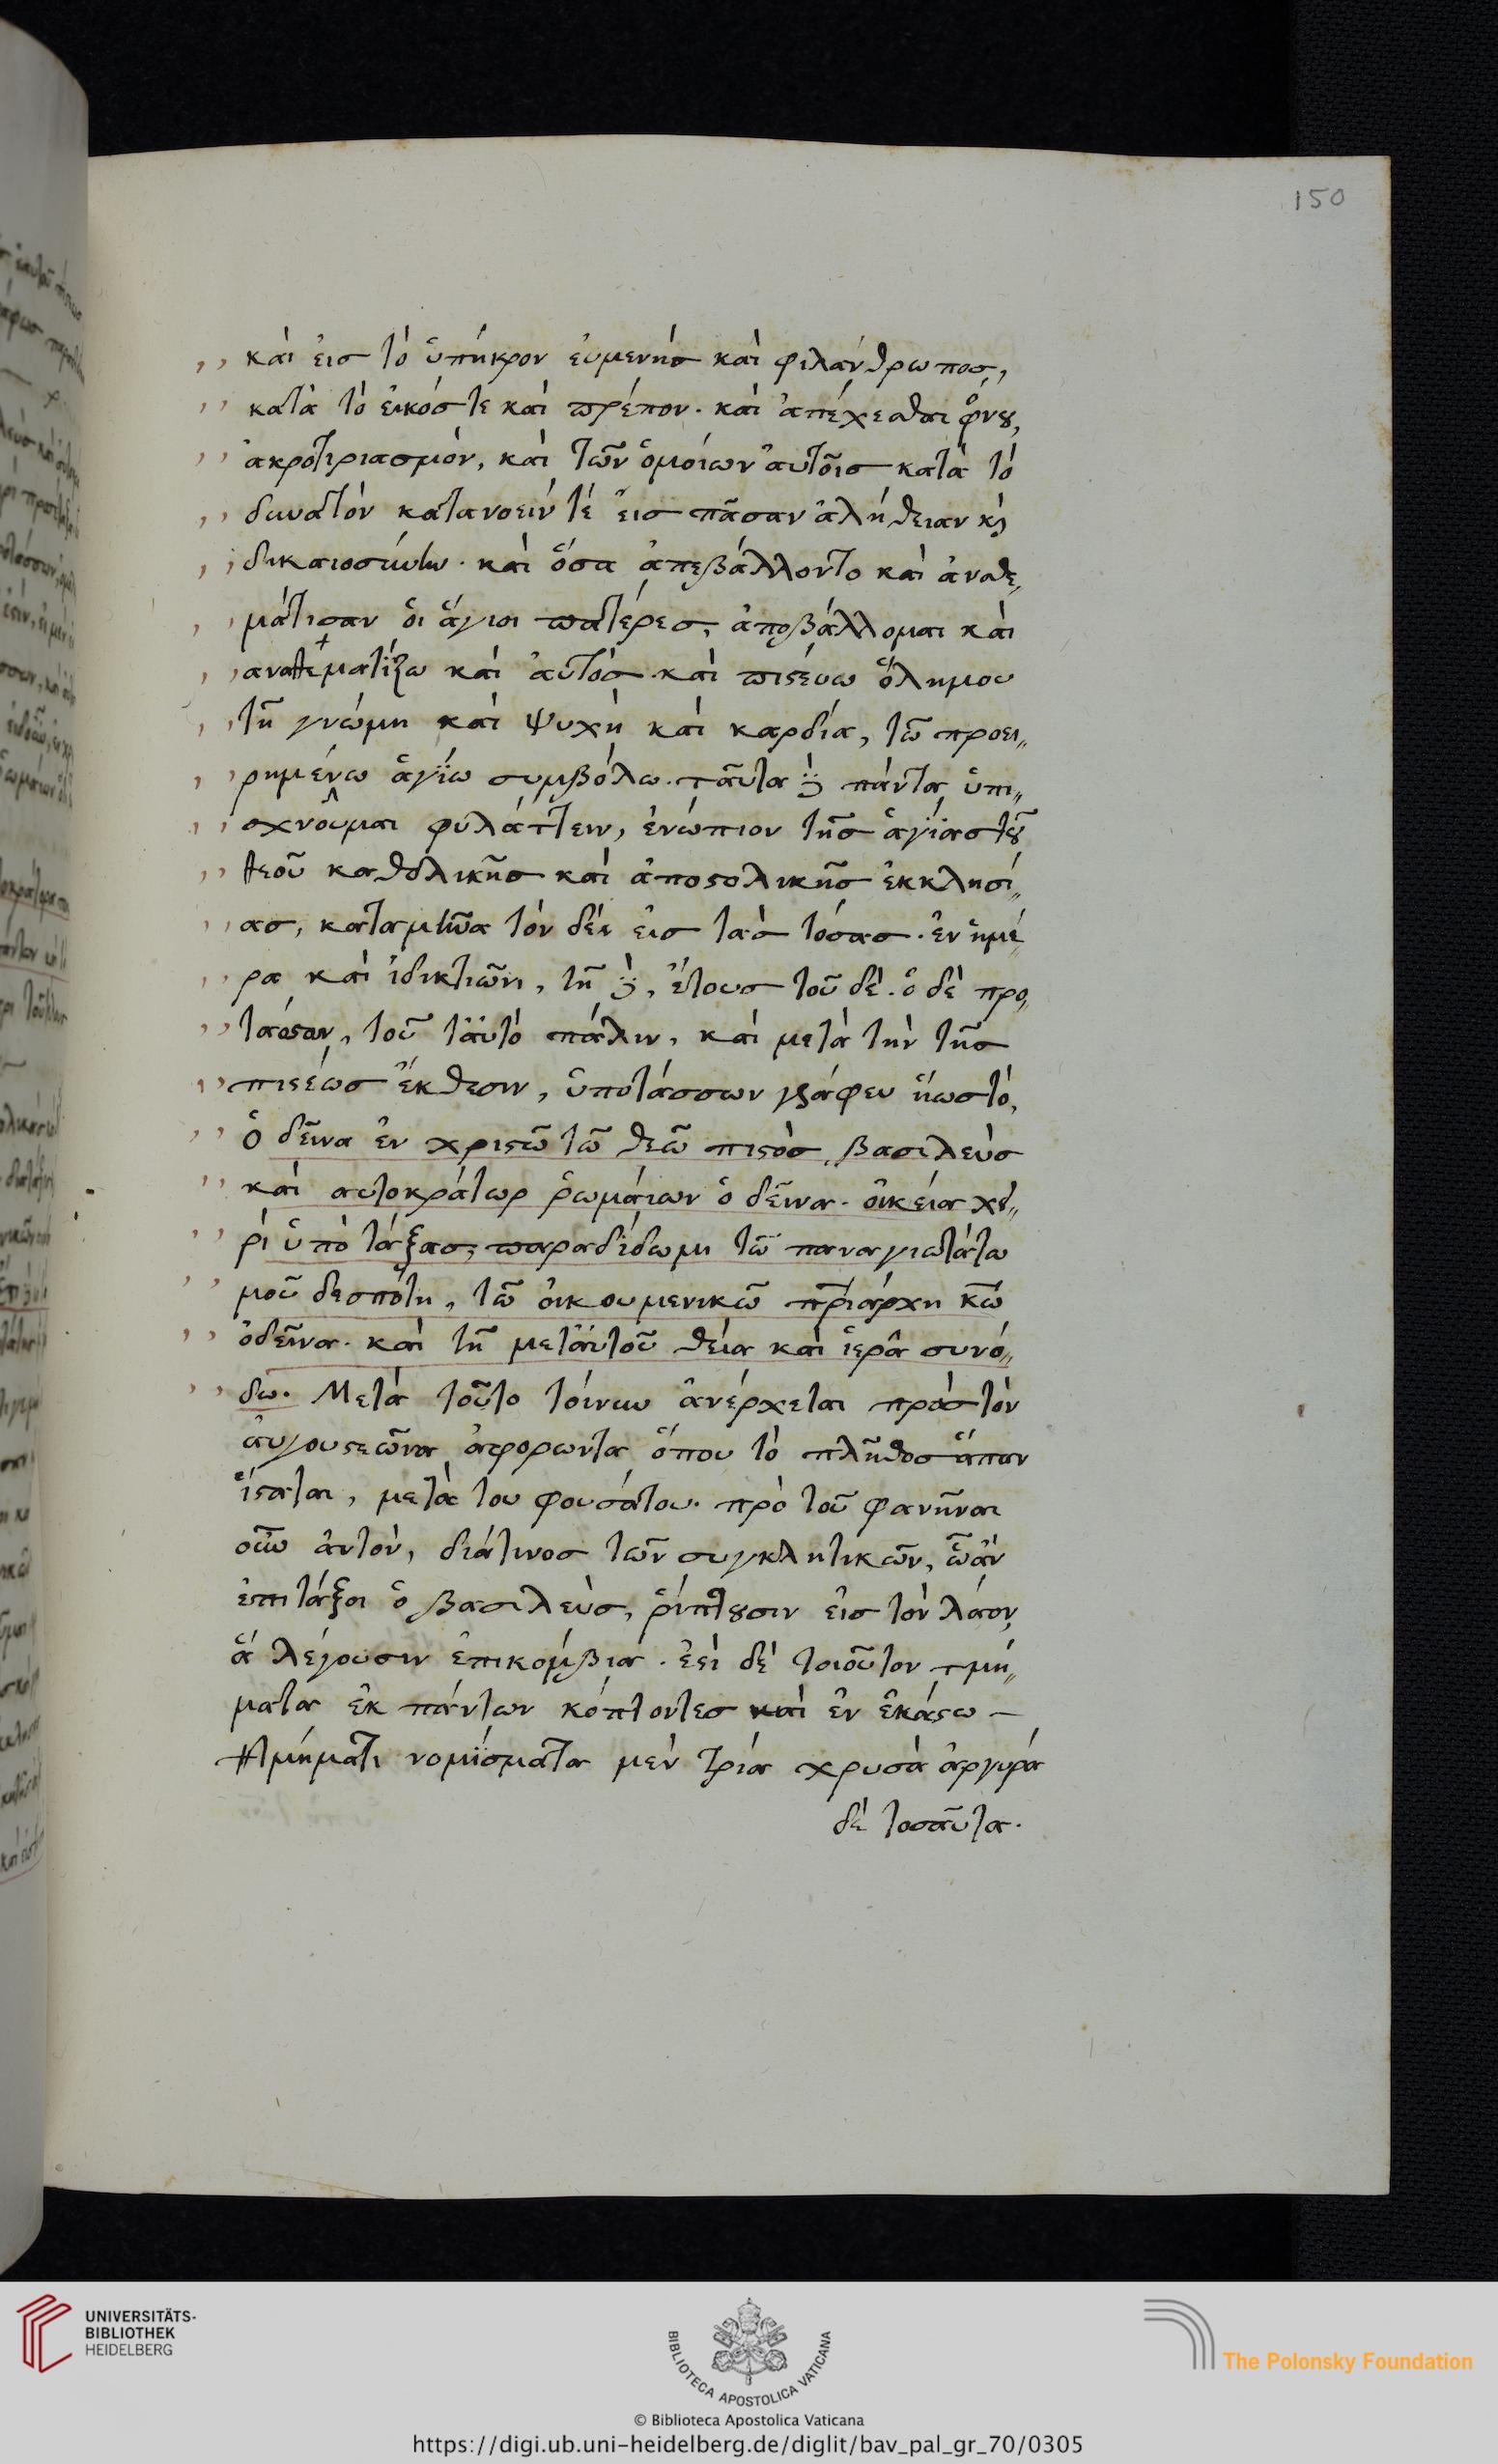 150
,, καὶ εἰσ τὸ ὑπήκρον εὐμενὴσ καὶ φιλάνθρωποσ,
,, κατὰ τὸ εἰκόστε καὶ πρέπον. καὶ ἀπέχεσθαι φόνου,
,, ἀκροτιριασμὸν, καὶ τῶν ὁμοίων αὐτοῖσ κατὰ τὸ
,, δυνατὸν κατανοεῖν τέ εἰσ πᾶσαν ἀλήθειαν κὶ
,, δικαιοσύνην. καὶ ὅσα ἀπεβάλλοντο καὶ ἀναθε„
,, μάτισαν οἱ ἅγιοι πατέρεσ, ἀποβάλλομαι καὶ
,, αναθεματίζω καὶ αὐτὸσ. καὶ πιστεύω ὅλημου
,, τῆ γνώμη καὶ ψυχῆ καὶ καρδία, τῶ προει„
,, ρημένω ἁγίω συμβόλω. ταῦτα πάντα ὑπι„
,, σχνοῦμαι φυλάττειν, ἐνώπιον τῆσ ἁγίασ τοῦ
,, θεοῦ καθολικῆσ καὶ ἀποστολικῆσ ἐκκλησί„
,, ασ, κατὰ μῆνα τὸν δὲν εἰσ τὰσ τόσασ. ἐν ἡμέ
,, ρα καὶ ἰδικτιῶνι, τῆ , ἔτουσ τοῦ δὲ. ὁ δὲ προ„
,, τάσσων, τοῦ ταὐτὸ πάλιν, καὶ μετὰ τὴν τῆσ
,, πιστέωσ ἔκθεσιν, ὑποτάσσων γράφει
,, ὁ δεῖνα ἐν χριστῶ τῶ θεῶ πιστὸσ, βασιλεὺσ
,, καὶ αυτοκράτωρ ῥωμάιων ὁ δεῖνα. οἰκεία χει„
,, ρὶ ὑπὸ τάξασ, παραδίδωμι τῶ παναγιωτάτω
,, μοῦ δεσπότη, τῶ οἰκουμενικῶ πριάρχη κῶ
,, ὁδεῖνα. καὶ τῆ μετἀυτοῦ θεία καὶ ἱερᾶ συνό„
,, δω. Μετὰ τοῦτο τοίνυν ἀνέρχεται πρὸσ τὸν
ἀυγουστεῶνα ἀφορωντα ὅπου τὸ πλῆθοσ ἅπαν
ἵσταται, μετὰ του φουσάτου. πρὸ τοῦ φανῆναι
οὖν ἀυτὸν, διάτινοσ τῶν συγκλητικῶν, ὧἂν
ἐπιτάξοι ὁ βασιλεὺσ, ῥίπτουσιν εἰσ τὸν λαὸν,
ἃ λέγουσιν ἐπικόμβια. ἐστὶ δὲ τοιοῦτον τμή„
ματα ἐκ πάντων κόπτοντεσ καὶ ἐν ἑκάστω —
τμήματι νομίσματα μὲν τρία χρυσὰ ἀργυρὰ
δὲ τοσαῦτα.
UNIVERSITÄTS-
BIBLIOTHEK
HEIDELBERG
BIBLIOTECA APOSTOLICA VATICANA
The Polonsky Foundation
© Biblioteca Apostolica Vaticana
https://digi.ub.uni-heidelberg.de/diglit/bav_pal_gr_70/0305